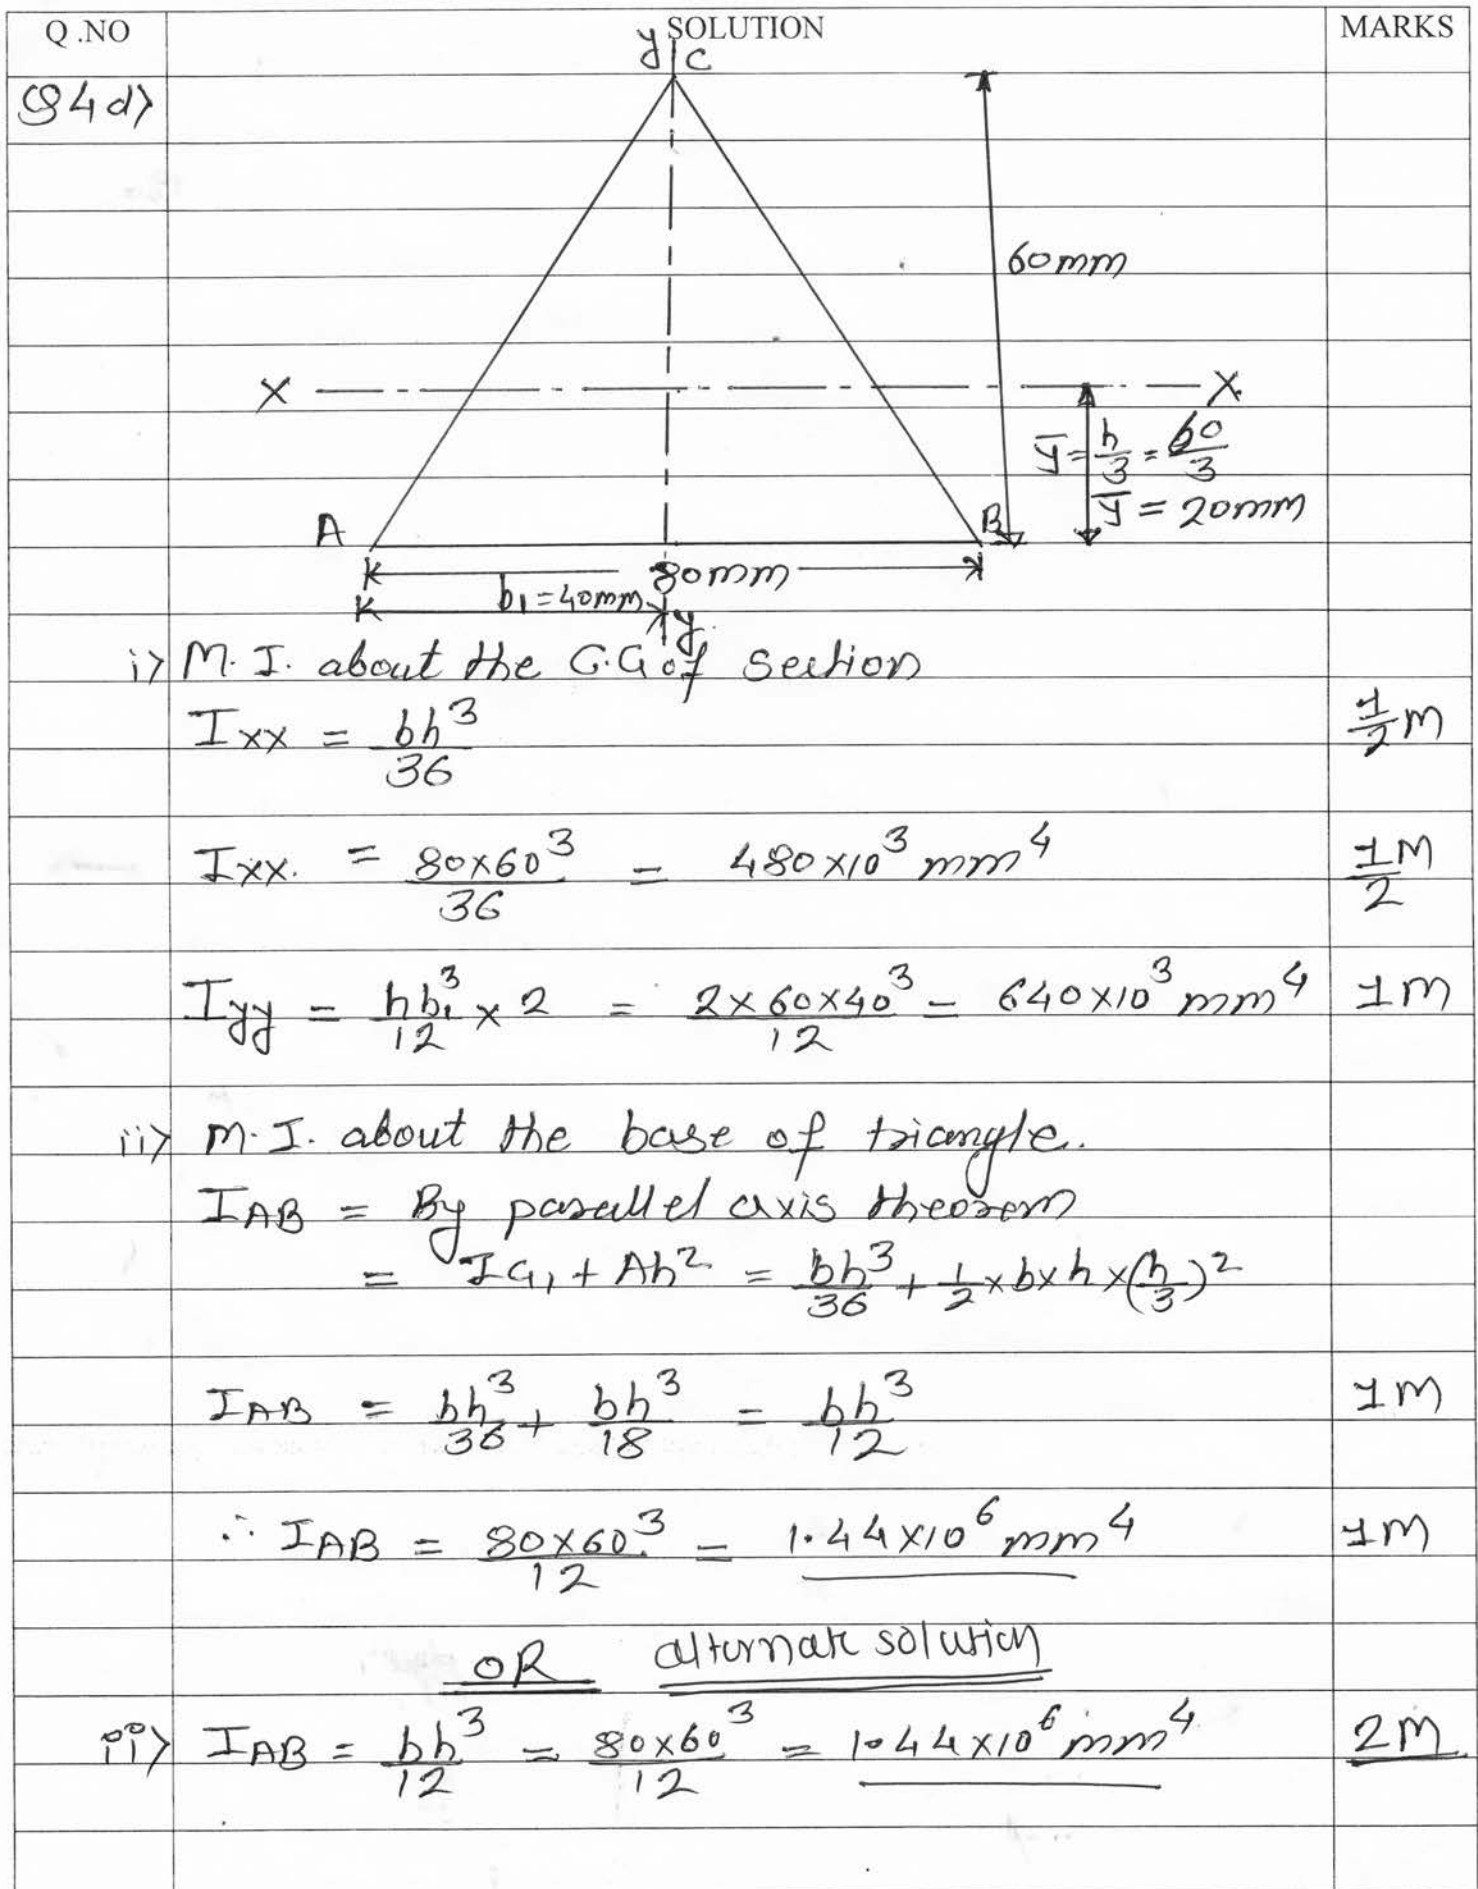 Q.NO SOLUTION MARKS
Q4d)
y C
60mm
X X
ȳ = h/3 = 60/3
ȳ = 20mm
A B
80mm
b₁ = 40mm
y
i) M.I. about the C.G of section
Ixx = bh³/36 1/2 M
Ixx. = 80×60³/36 = 480×10³ mm⁴ 1M/2
Iyy = hb₁³/12 × 2 = 2×60×40³/12 = 640×10³ mm⁴ 1M
ii) M.I. about the base of triangle.
IAB = By parallel axis theorem
= IG₁ + Ah² = bh³/36 + 1/2 × b × h × (h/3)²
IAB = bh³/36 + bh³/18 = bh³/12 1M
∴ IAB = 80×60³/12 = 1.44×10⁶ mm⁴ 1M
OR alternate solution
ii) IAB = bh³/12 = 80×60³/12 = 1.44×10⁶ mm⁴ 2M